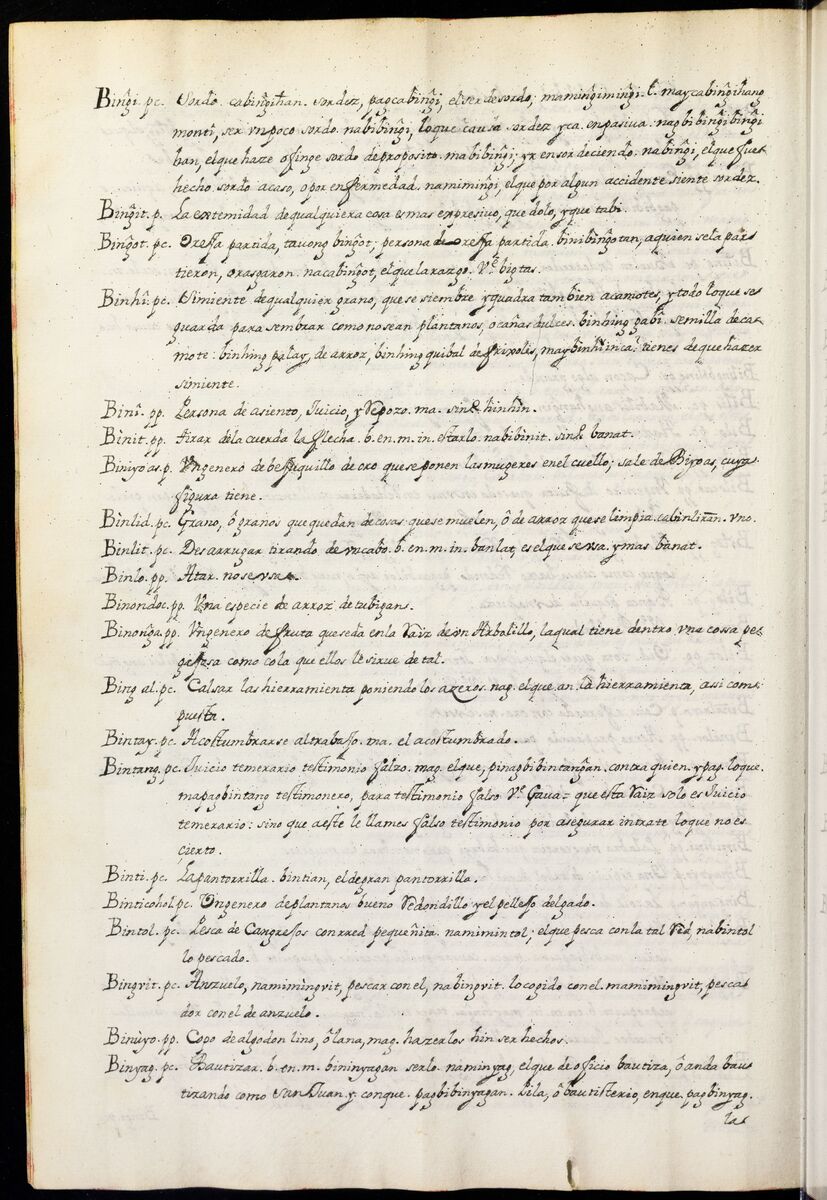 Bingȋ. pc. Sordo. cabingȋhan. sordez, pagcabingȋ, el ser de sordo; mamingȋmingȋ. l. maycabingȋhang
monti, ser un poco sordo. nabibingȋ, lo que causa sordez y ca. en pasiva. nagbibingȋbingȋ
han, el que haze o finge sordo de proposito. mabibingȋ; yr ensordeciendo. nabingȋ, el que fue
hecho sordo acaso, o por enfermedad. namimingȋ, el que por algun accidente siente sordez.
Bingit. p. La extemidad de qualquiera cosa es mas expresivo, que dolo, y que tabi.
Bingot. pc. Oreja partida, tavong bingot; persona de oreja partida. binibingotan, a quien se la par-
tieron, o rasgaron. nacabingot, el que la razgo. Ve. bigtas.
Binhȋ. pc. Simiente de qualquier grano, que se siembre y quadra tambien a camotes, y todo lo que se
guarda para sembrar como no sean plantanos, o cañas dulces. binhing gabȋ. semilla de ca-
mote: binhing palay, de arroz, binhing quibal de frixoles, may binhȋ in ca. tienes de que hazer
simiente.
Binȋ. pp. Persona de asiento, Juicio, y Repozo. ma. sinE hinhȋn.
Binit. pp. tirar de la cuerda la flecha. b. en. m. in. estarlo. nabibinit. sinE banat.
Biniyoas. p. Un genero de bejuquillo de oro que se ponen las mugeres en el cuello; sale de Biyoas, cuya
figura tiene.
Binlid. pc. Grano, ô granos que quedan de cosas que se muelen, ô de arroz que se limpia. cabinliran. vno.
Binlit. pc. Desarrugar tirando de un cabo. b. en. m. in. banlat, es el que se usa. y mas bànat.
Binlo. pp. Atar. no se usa.
Binondoc. pp. Una especie de arroz de tubigans.
Binonga. pp. Un genero de fruta que se da en la Raiz de un Arbolillo, la qual tiene dentro una cossa pe-
gajosa como cola que ellos le sirue de tal.
Bing al. pc. Calsar las hierramienta poniendo los azeros. nag. el que. an. la hierramienta, assi com-
puesta.
Bintay. pc. Acostumbrarse al trabajo. ma. el acostumbrado.
Bintang. pc. Juicio temerario testimonio falzo. mag. el que, pinagbibintangan. contra quien. y pag. lo que.
mapagbintang testimonero, para testimonio falso Ve. Gaua = que esta Raiz solo es Juicio
temerario: sino que a este le llames falso testimonio por asegurar intrate lo que no es
çierto.
Binti. pc. La pantorrilla. bintian, el de gran pantorrilla.
Binticohol. pc. Un genero de plantanos bueno Redondillo y el pellejo delgado.
Bintol. pc. Pesca de Cangrejos con rred pequeñita. namimintol; el que pesca con la tal Red, nabintol
lo pescado.
Bingvit. pc. Anzuelo, namimìngvit, pescar con el, nabingvit. lo cogido con el. mamimingvit, pesca-
dor con el de anzuelo.
Binùyo. pp. Copo de algodon lino, ô lana, mag. hazerlos hin ser hechos.
Binyag. pc. Bautizar. b. en. m. bininyagan serlo. naminyag, el que de officio bautiza, ô anda bau-
tizando como San Juan y. con que. pagbibinyagan. Pila, ô bautisterio, en que. pagbinyag.
la